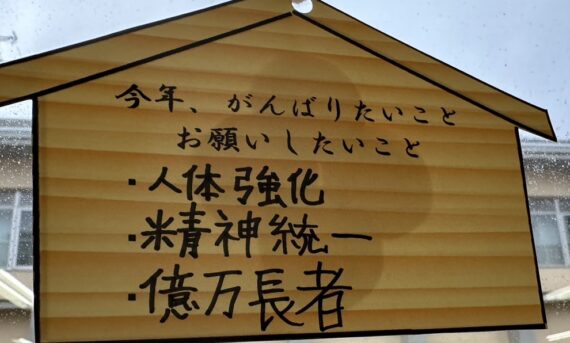 今年、がんばりたいこと
お願いしたいこと
・人体強化
・精神統一
・億万長者